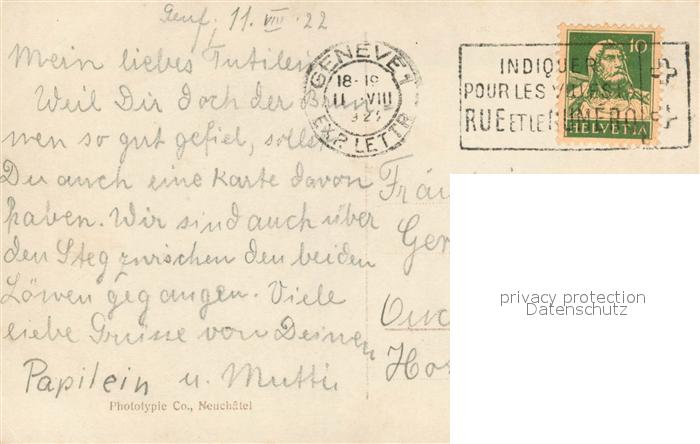 Genf, 11. VIII. 22
Mein liebes Tutilein
Weil Dir doch der Brun-
nen so gut gefiel, sollst
Du auch eine Karte davon
haben. Wir sind auch über
den Steg zwischen den beiden
Löwen gegangen. Viele
liebe Grüsse von Deinen
Papilein u. Mutti
Phototypie Co., Neuchâtel
GENEVE 1
18-19
11 VIII
EXP. LETTR.
INDIQUER
POUR LES VILLES
RUE ET LE NUMERO
10
HELVETIA
privacy protection
Datenschutz